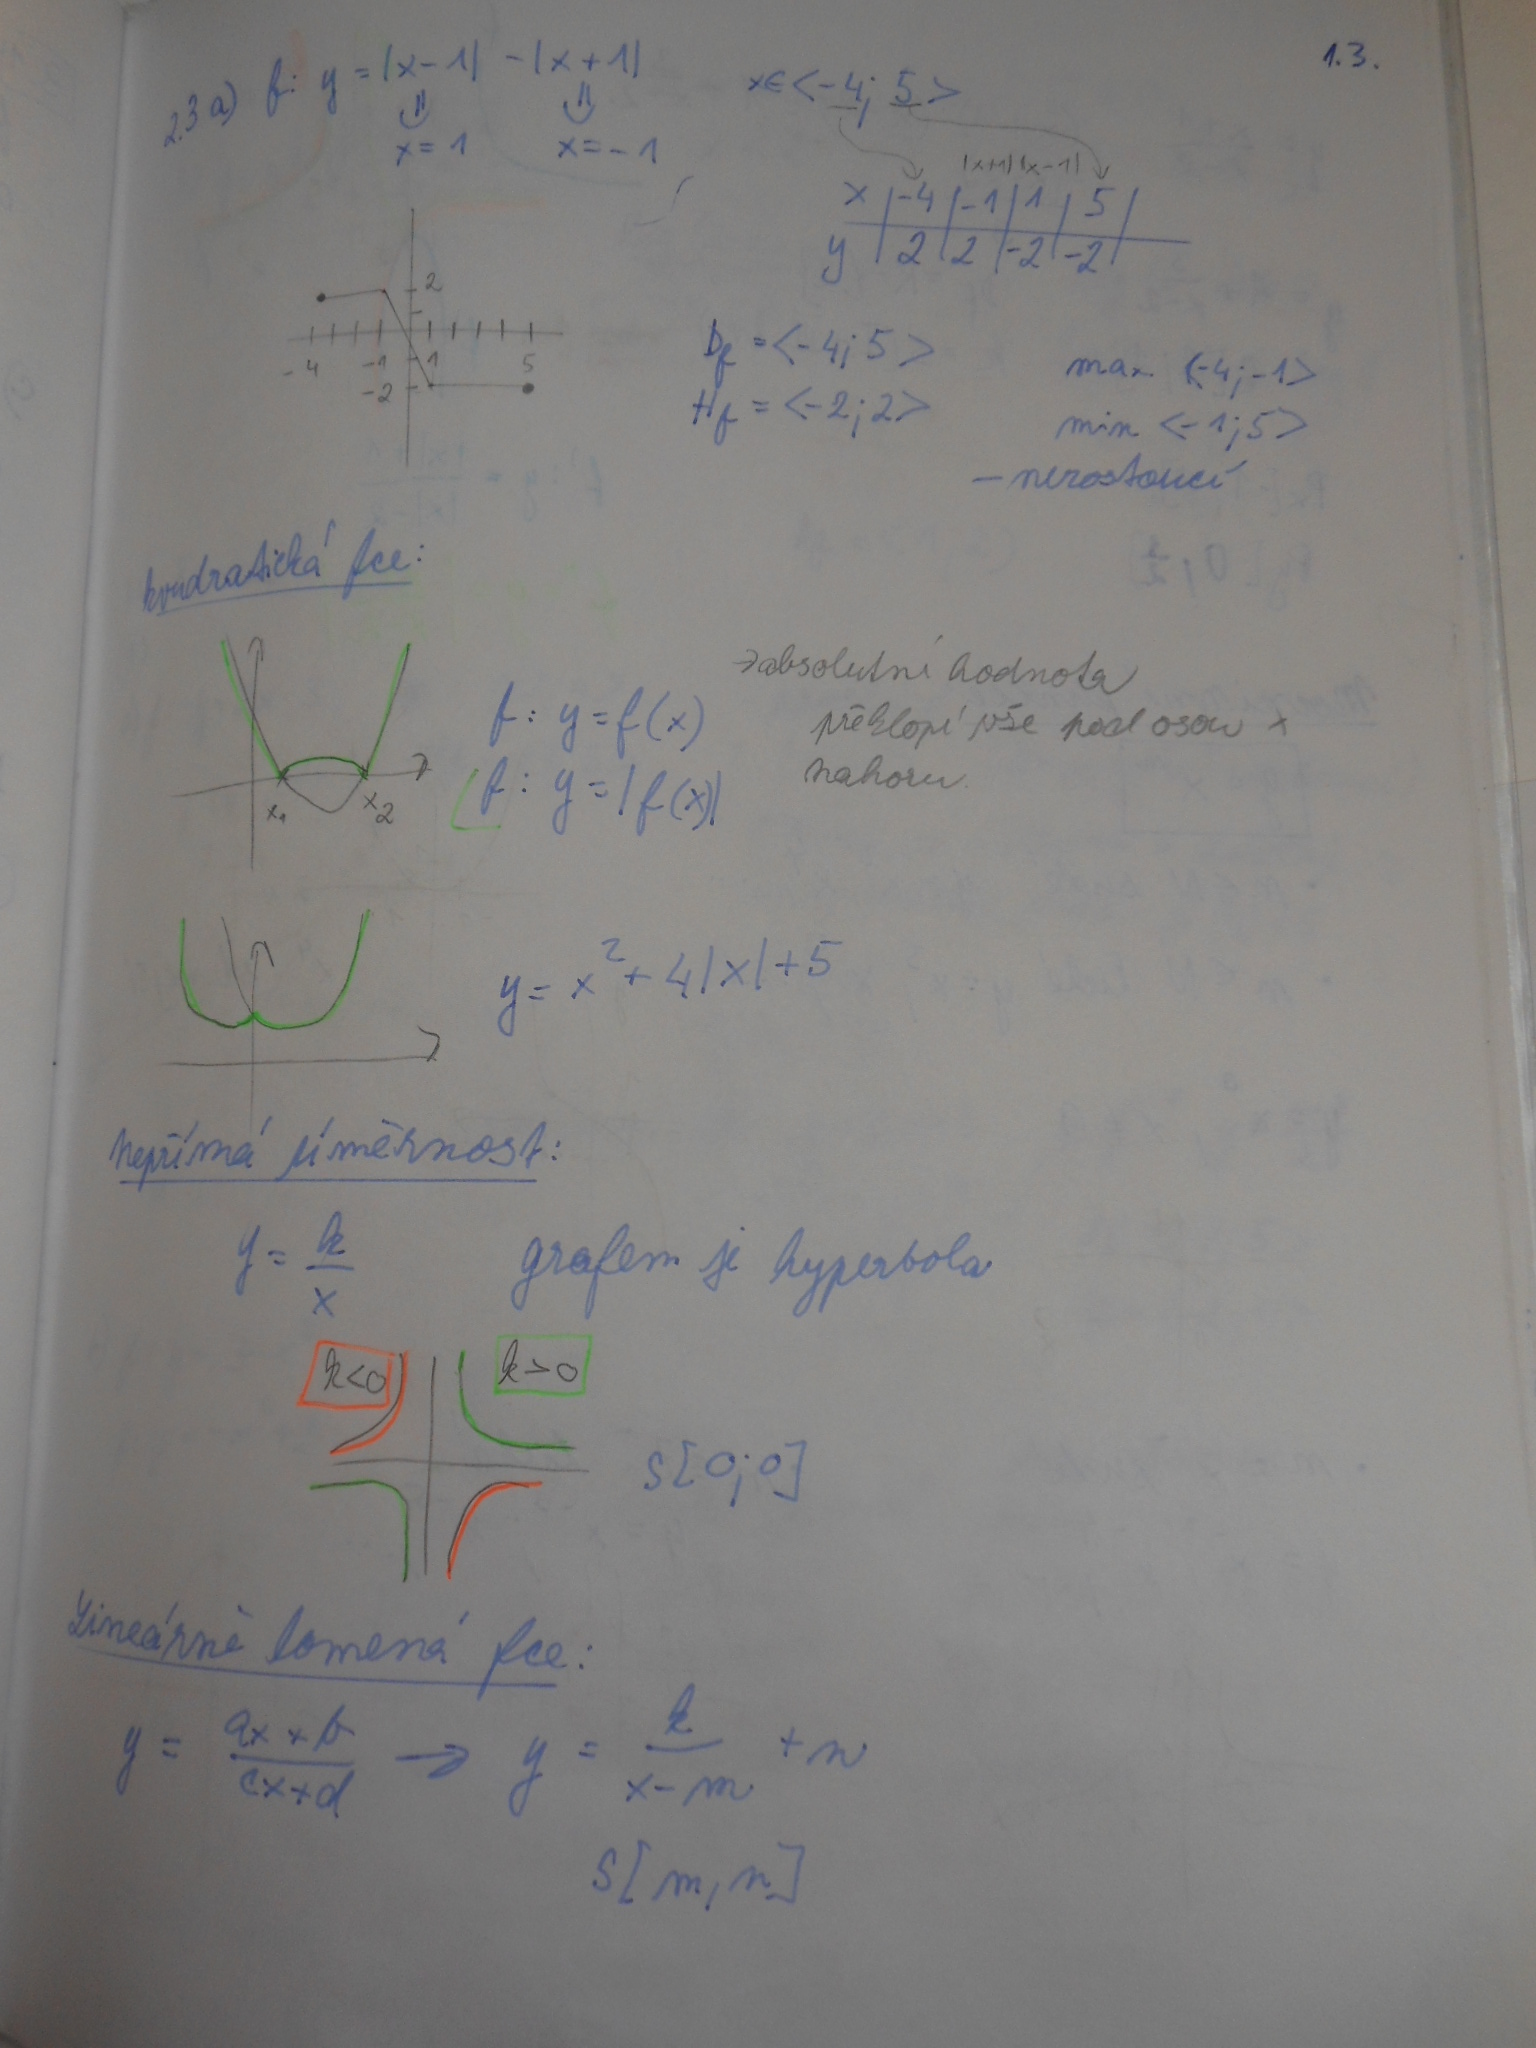 1.3.
2.3 a) f: y = |x-1| - |x+1| x∈<-4; 5>
x=1 x=-1
|x+1| |x-1|
x | -4 | -1 | 1 | 5 |
y | 2 | 2 | -2 | -2 |
2
-4 -1 1 5
-2
Df = <-4; 5>
Hf = <-2; 2>
max <-4; -1>
min <-1; 5>
- nerostoucí
kvadratická fce:
f: y = f(x)
f: y = |f(x)|
→ absolutní hodnota
překlopí vše pod osou x
nahoru
x1 x2
y = x² + 4|x| + 5
Nepřímá úměrnost:
y = k/x grafem je hyperbola
k<0 k>0
S[0;0]
Lineárně lomená fce:
y = ax+b/cx+d → y = k/x-m + n
S[m, n]